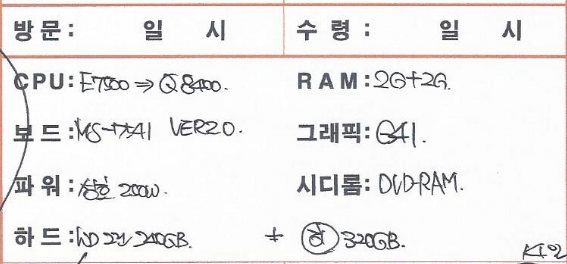 방 문 : 일 시 수 령 : 일 시
CPU: E7500 ⇒ Q8400. RAM: 2G+2G.
보 드 : MS-7741 VER2.0. 그래픽: G41.
파 워 : 200W. 시디롬: DVD-RAM.
하 드 : WD 240GB. + 320GB.